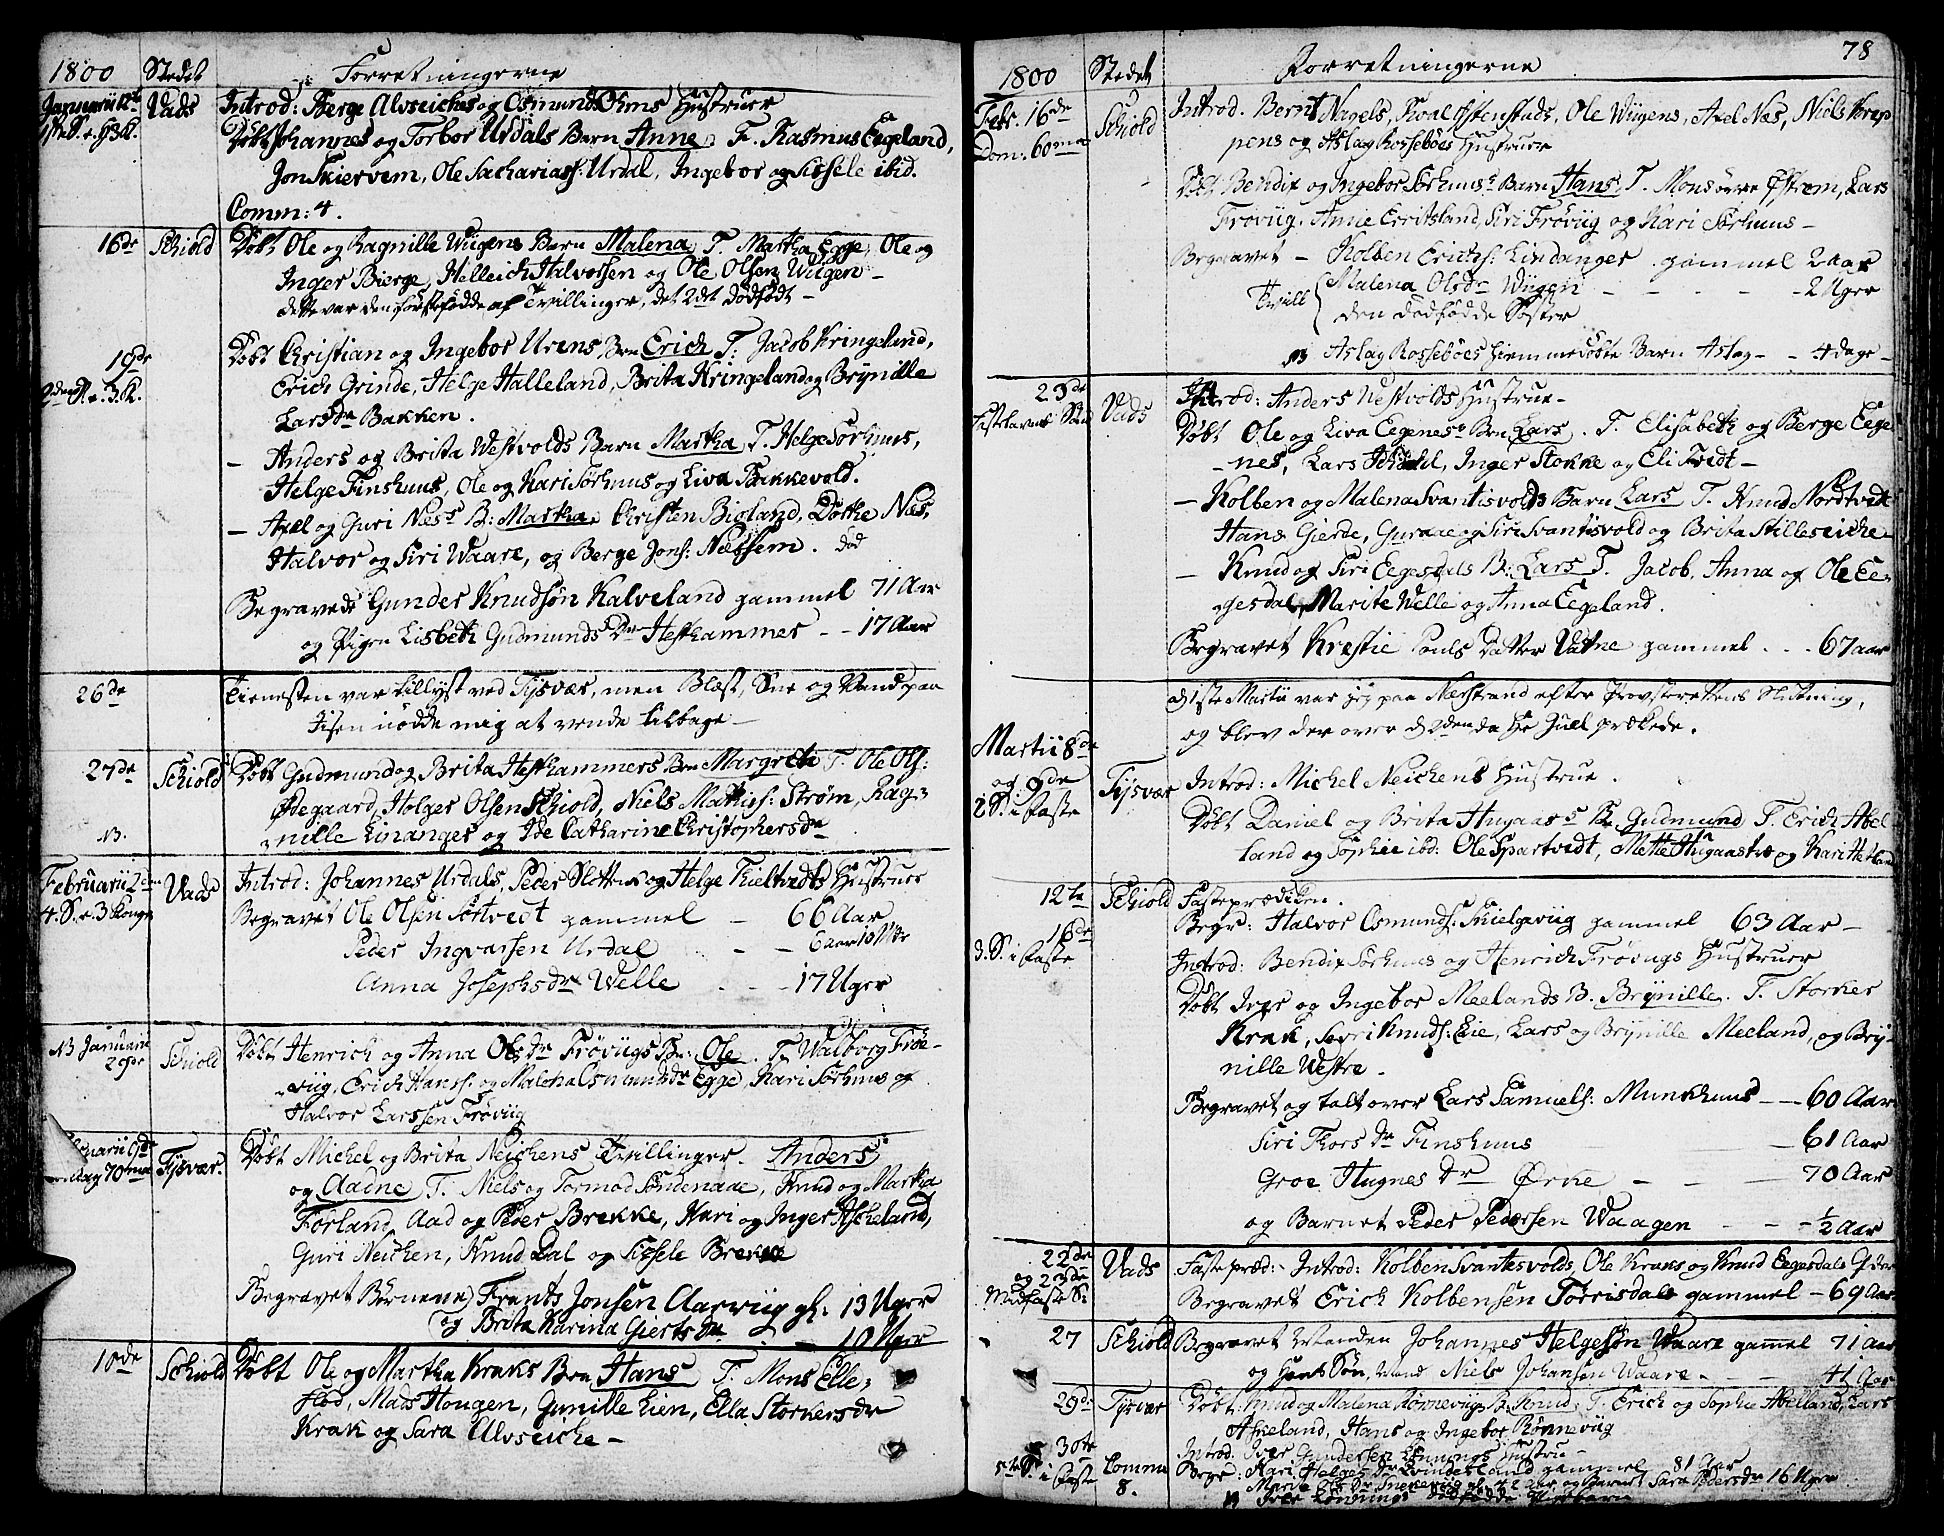 1800 Stedet Forretningerne
Januarii 12te Vads Introd: Berge Alvseiches og Osmund Hustruer
1ste S. e. H3K. Døbt Johannes og Torbor Urdals Barn Anne. F. Rasmus Eegeland,
Jon Skiervem, Ole Sachariass: Urdal, Ingebor og Sissele ibid.
Comm: 4.
16de Schiold Døbt Ole og Ragnille Wiigens Barn Malena. T. Martha Egge, Ole og
Inger Bierge, Helleich Halvorsen og Ole Olsen Wiigen -
dette var den førstefødde af Tvillinger, det 2det dødfødt -
19de Døbt Christian og Ingebor Urens Brn Erich T: Jacob Kringeland,
2den S. e. 3.K. Erich Grinde, Helge Halleland, Brita Kringeland og Brynille
Larsdr Bakken.
- Anders og Brita Westvolds Barn Martha T. Helge Sørhuus,
Helge Finshuus, Ole og Kari Sørhuus og Liva Bakkevold.
- Axel og Guri Næss B: Martha, Christen Bioland, Dorthe Næs,
Halvor og Siri Waare, og Berge Jons: Nætsem. død
Begravede Gunder Knudsøn Kalveland gammel 71 Aar
og Pigen Lisbeth Gudmundsdr Hefthammer - - 17 Aar
26de Tienesten var tillyst ved Tysvær, men Blæst, Sne og Vand paa
Iisen nødde mig at vende tilbage -
27de Schiold Døbt Gudmund og Brita Hefthammers Brn Margrete T. Ole Ols:
Ødegaard, Holger Olsen Schiold, Niels Mathiss: Strøm, Rag-
NB. nille Linanger og Ide Catharine Christophersdr
Februarii 2den Vads Introd: Johannes Urdals, Peder Sletten og Helge Kieltvedts Hustruer
4. S. e. 3 Konger Begravet Ole Olsen Sørtvedt gammel - 66 Aar
Peder Ingvarsen Urdal - - 6 aar 10 Mdr
Anna Josephsdr Welle - - - 17 Uger
NB Januarii Schiold Døbt Henrich og Anna Olsdr Frøviigs Br: Ole. T. Walborg Frøe-
29de viig, Erich Hanss: og Malena Osmundsdr Egge, Kari Sørhuus og
Halvor Larssen Frøviig
Februarii 9de Tysvær. Døbt Michel og Brita Neichens Tvillinger - Anders
70ma og Aadne T. Niels og Tormod Søndenaae, Knud og Martha
Førland, Aad og Peder Brekke, Kari og Inger Askeland,
Guri Neichen, Knud Dal og Sissele Brekke
Begravet Børnene Frants Jonsen Aarviig gl. 13 Uger
og Brita Karina Giertsdr - 10 Uger
10de Schiold Døbt Ole og Martha Kraks Brn Hans T. Mons Elle-
flod, Mads Hougen, Gunille Lien, Ella Storkersdr
Krak og Sara Alvseiche -
78
1800 Stedet Forretningerne
Febr. 16de Schiold Introd. Bernt Nagels, Roal Østenstads, Ole Wiigens, Axel Næs, Niels Krep
Dom. 60ma pens og Aslag Rossebøes Hustruer
Døbt Bendix og Ingebor Sørhuuss Barn Hans. T. Mons øvre Østrem, Lars
Frøviig, Anne Erritsland, Siri Frøviig og Kari Sørhuus -
Begravet - Kolben Erichs: Lindanger gammel 2 Aar
Tvill Malena Olsdr Wiigen - - - - 2 Uger
den dødfødde Søster
NB Aslag Rossebøes hiemmedøbte Barn Aslag - - 4 dage -
23de Introd: Anders Westvolds Hustrue -
Fastelavns Vads Døbt Ole og Liva Eegeness Brn Lars. T. Elisabeth og Berge Eege
nes, Lars, Inger Stokke og Eli Tvedt -
- Kolben og Malena Svantisvolds Barn Lars T. Knud Nordtvedt
Hans Gierde, Guraae og Siri Svantisvold og Brita Stilleseiche
- Knud og Siri Eegesdals B: Lars T. Jacob, Anna og Ole Ee-
gesdal, Marite Welle og Anna Eegeland.
Begravet Krestie Pouls Datter Vatne gammel - - - 67 aar
d 1ste Martii var jeg paa Nærstrand efter Provsterettens Slutning,
og blev der over d 2den da Hr Juel prækede.
Martii 8de
og 9de Tysvær Introd: Michel Neichens Hustrue.
2 S. i Faste Døbt Daniel og Brita Hugaass B. Gudmund T. Erich Abel
land og Sophie ibd: Ole Spartvedt, Mette Hugaas og Kari Hetland
12te Schiold Fasteprædiken.
Begr: Halvor Osmunds: Skielgaviig gammel 63 Aar -
16de
3. S. i Faste Introd: Bendix Sørhuus og Henrich Frøviigs Hustruer
Døbt Iver og Ingebor Meelands B. Brynille. T. Storker
Krak, Knuds: Lie, Lars og Brynille Meeland, og Bry-
nille Westre.
Begravet og talt over Lars Samuels: Munkhuus - - 60 Aar
Siri Thorsdr Finshuus - 61 Aar
Groe Hugnesdr Ørke - - - 70 Aar
og Barnet Peder Pedersen Waagen - - - 1/2 Aar
22de Vads Fastepræd: - Introd: Kolben Svantesvolds, Ole Kraks og Knud Eegesdals Qvder
og 23de
Midfaste S: Begravet Erich Kolbensen Tørrisdal gammel - 69 Aar
27 Schiold Begravet Manden Johannes Helgesøn Waare gamel 71 aar
og Hans Søn, Niels Johansen Waare - - 41 Aar
29de Tysvær Døbt Knud og Malena Rønneviigs B. Knud. T. Erich og Sophie Abelland, Lars
Askeland, Hans og Ingebor Rønneviig
30te Comm: Introd: Iver Gundersen Lønnings Hustru -
5te S. i Faste 8. Begr: Kari Helgesdr gammel 81 Aar
og Barnet Sara Pedersdr 16 Uger
Iver Lønnings dødfødde